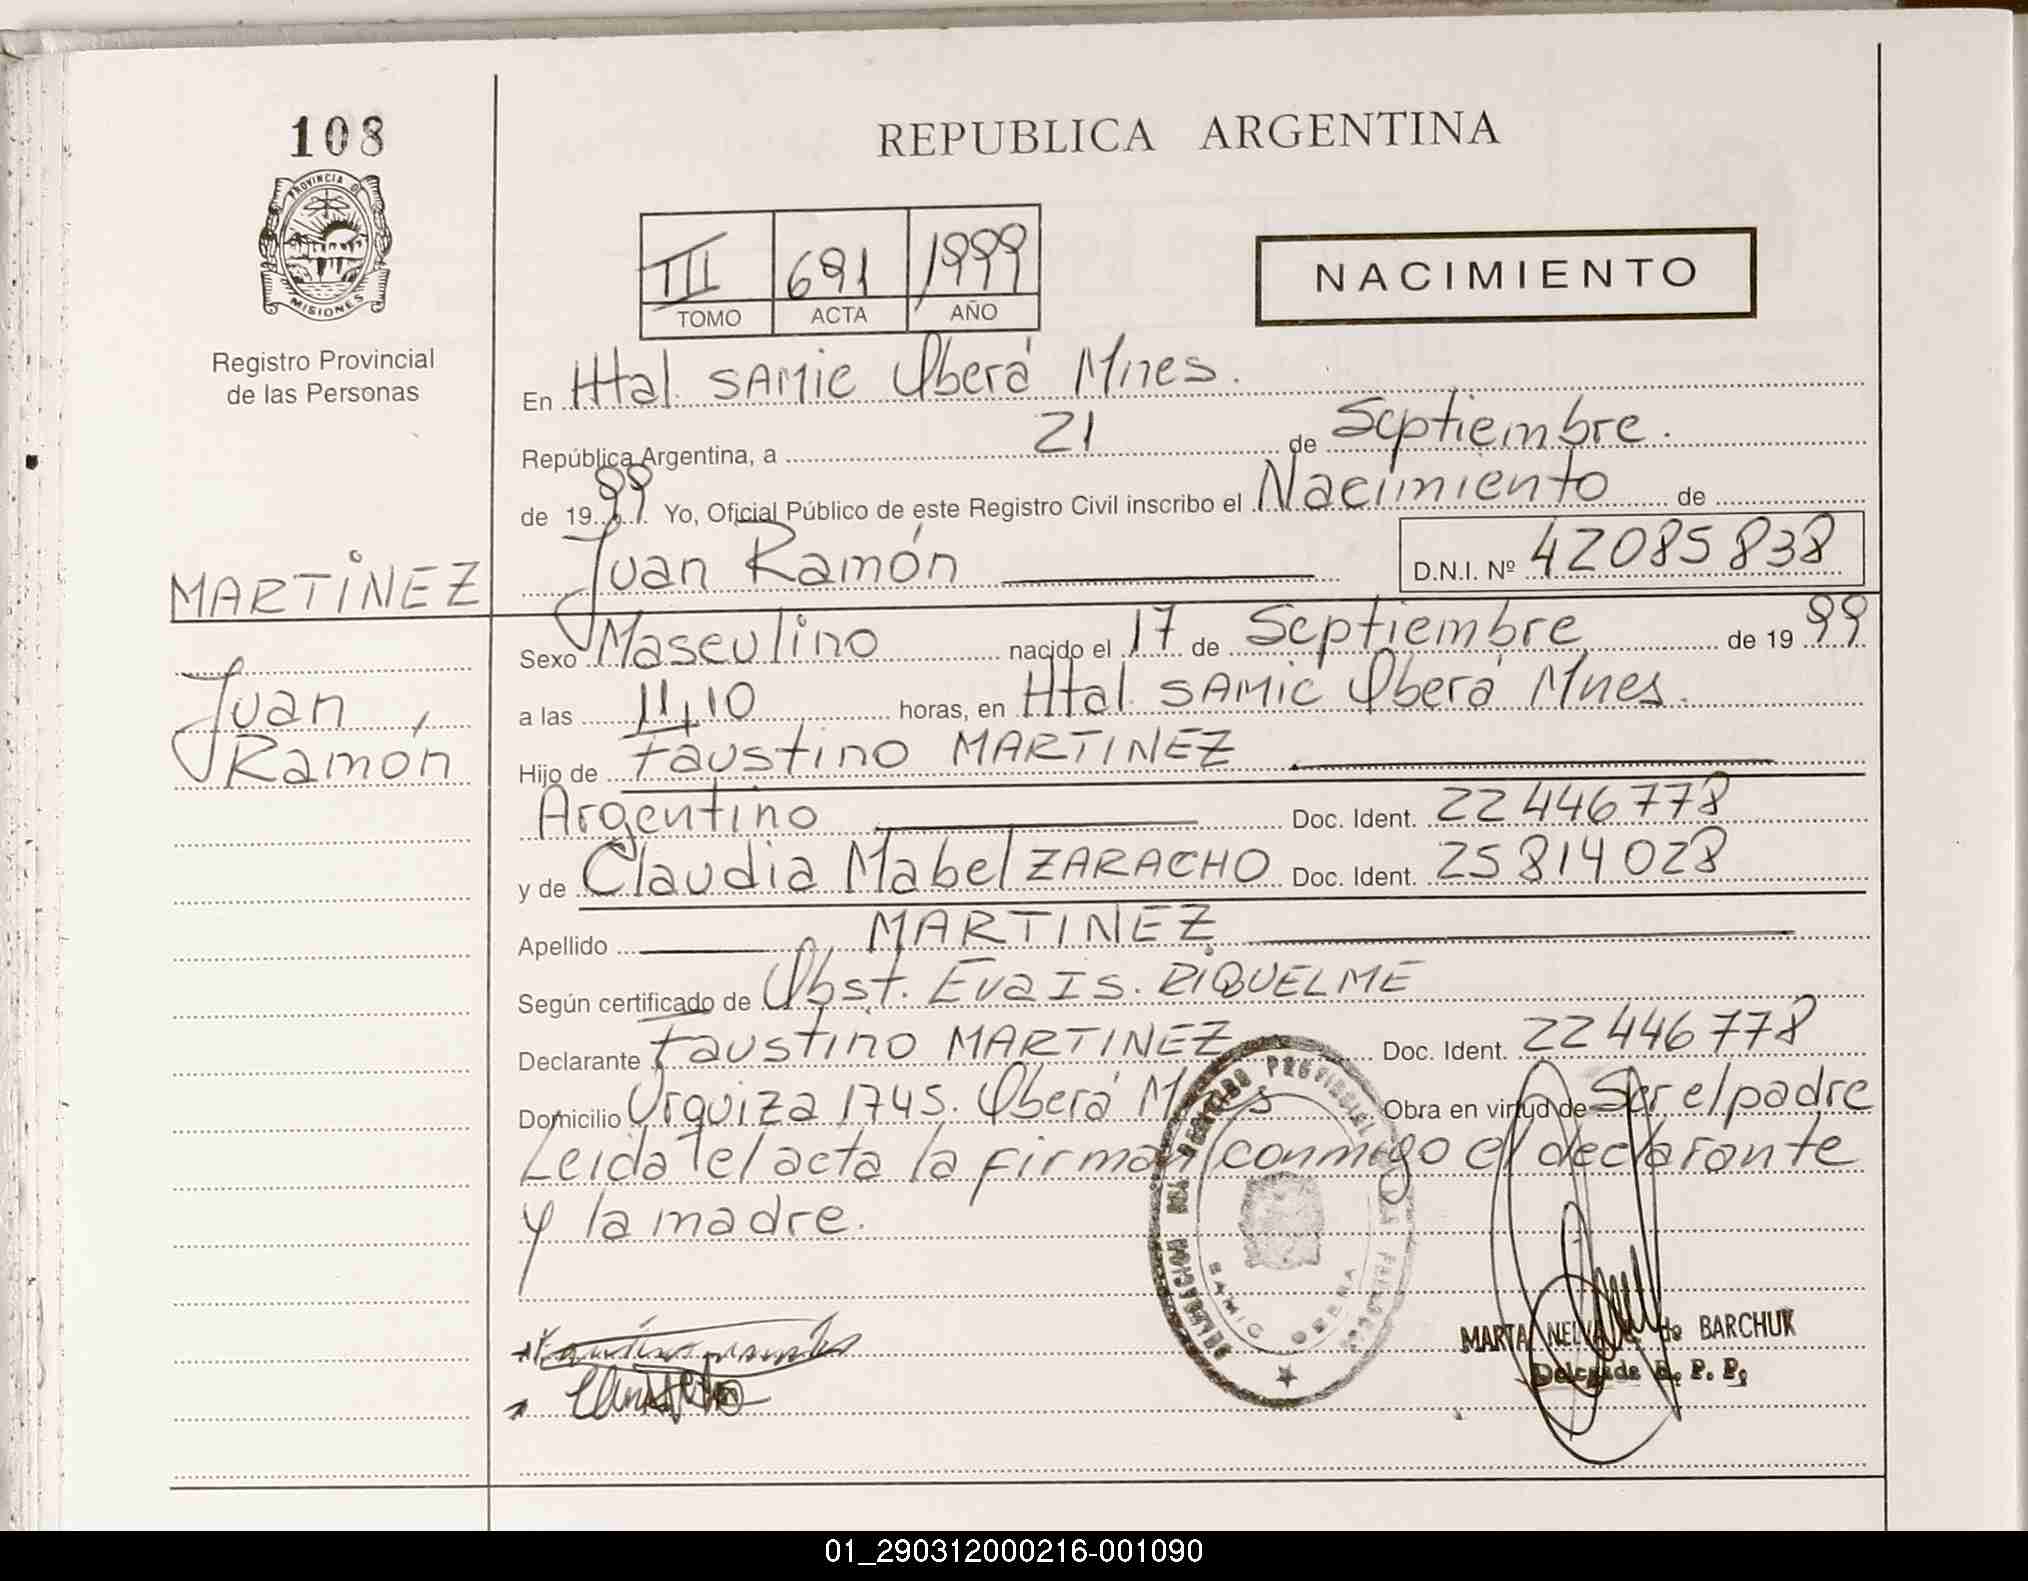 108
PROVINCIA DE
MISIONES
Registro Provincial
de las Personas
MARTINEZ
Juan
Ramón
REPUBLICA ARGENTINA
III 691 1999
TOMO ACTA AÑO
NACIMIENTO
En Htal. SAMIC Oberá Mnes.
República Argentina, a 21 de Septiembre.
de 1999 Yo, Oficial Público de este Registro Civil inscribo el Nacimiento de
Juan Ramón D.N.I. Nº 42085838
Sexo Masculino nacido el 17 de Septiembre de 1999
a las 11,10 horas, en Htal. SAMIC Oberá Mnes.
Hijo de Faustino MARTINEZ
Argentino Doc. Ident. 22446778
y de Claudia Mabel ZARACHO Doc. Ident. 25814028
Apellido MARTINEZ
Según certificado de Obst. Eva Is. RIQUELME
Declarante Faustino MARTINEZ Doc. Ident. 22446778
Domicilio Urquiza 1745. Oberá Mnes Obra en virtud de Ser el padre
Leida el acta la firman conmigo el declarante
y la madre.
DELEGACION DEL REGISTRO PROVINCIAL DE LAS PERSONAS
SAMIC OBERA
MARTA NELVA de BARCHUK
Delegada R. P. P.
01_290312000216-001090